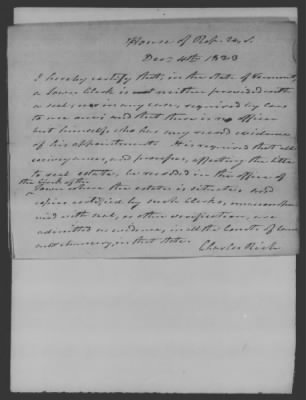 House of Rep. U.S.
Dec. 4th 1823
I hereby certify that, in the State of Vermont,
a Town Clerk is neither provided with
a seal, nor in any case, required by law
to use one; and that there is no officer
but himself, who has any record evidence
of his appointment. It is required that all
conveyances, and process, affecting the title
to real estate, be recorded in the office of
the Clerk of the
Town where the estate is situate. And
copies certified by such Clerks, unaccompa-
nied with seal, or other verification, are
admitted as evidence, in all the Courts of law
and chancery, in that State.
Charles Rich